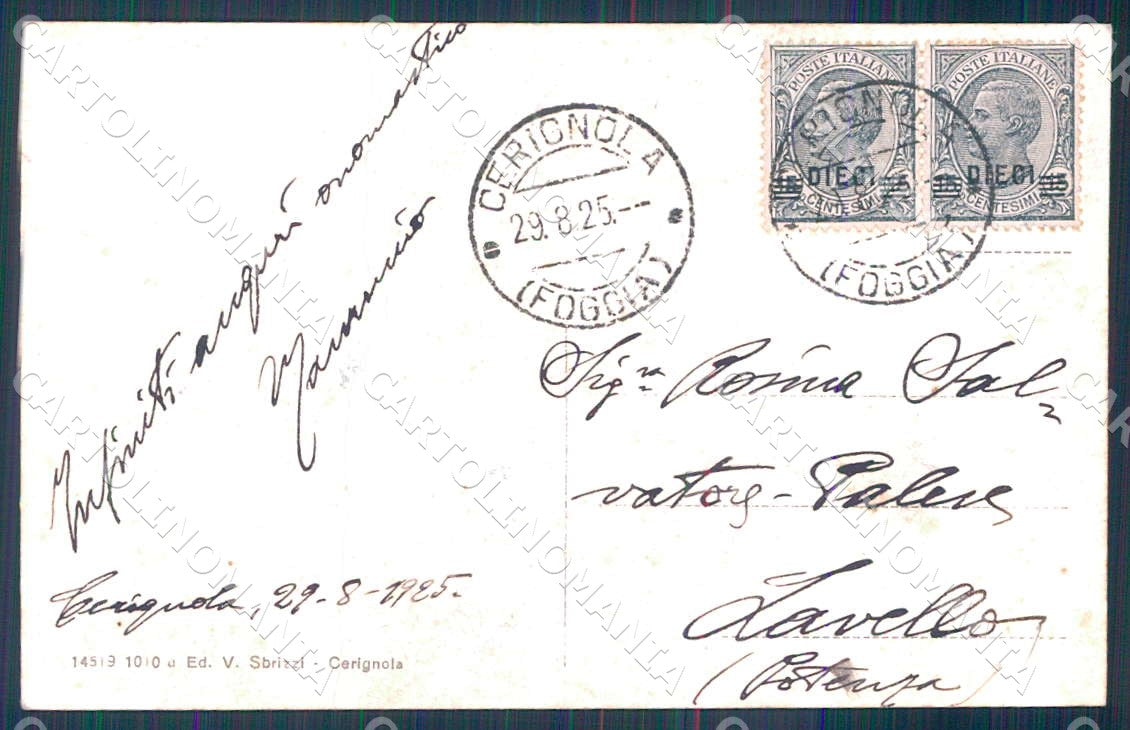 Infiniti auguri onomastico
Cerignola, 29-8-1925.
14519 1010 a Ed. V. Sbrizzi - Cerignola
CERIGNOLA
29.8.25.---
(FOGGIA)
POSTE ITALIANE
15 DIECI 15
CENTESIMI
POSTE ITALIANE
15 DIECI 15
CENTESIMI
CERIGNOLA
(FOGGIA)
Sig.ra Rosina Sal-
vatore - Palese
Lavello
(Potenza)
CARTOLINOMANIA